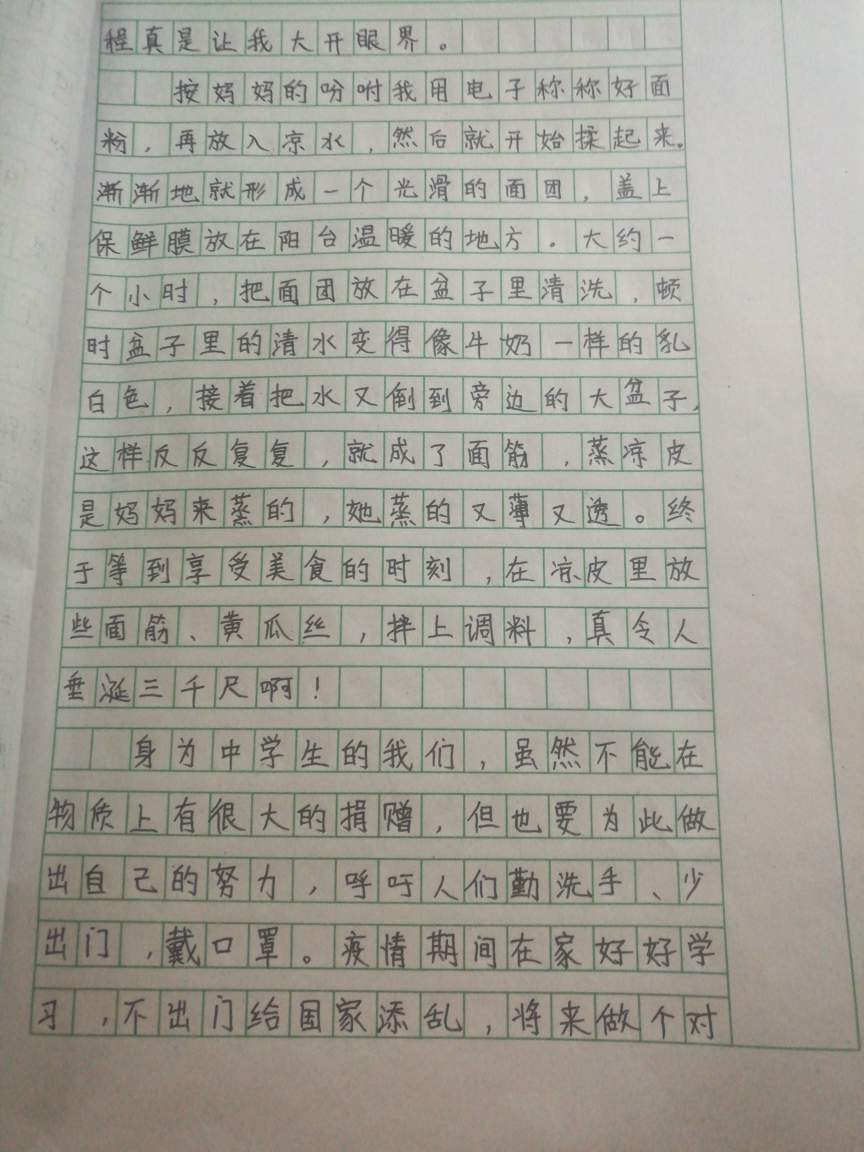 程真是让我大开眼界。
按妈妈的吩咐我用电子称称好面
粉，再放入凉水，然后就开始揉起来。
渐渐地就形成一个光滑的面团，盖上
保鲜膜放在阳台温暖的地方。大约一
个小时，把面团放在盆子里清洗，顿
时盆子里的清水变得像牛奶一样的乳
白色，接着把水又倒到旁边的大盆子，
这样反反复复，就成了面筋，蒸凉皮
是妈妈来蒸的，她蒸的又薄又透。终
于等到享受美食的时刻，在凉皮里放
些面筋、黄瓜丝，拌上调料，真令人
垂涎三千尺啊！
身为中学生的我们，虽然不能在
物质上有很大的捐赠，但也要为此做
出自己的努力，呼吁人们勤洗手、少
出门，戴口罩。疫情期间在家好好学
习，不出门给国家添乱，将来做个对